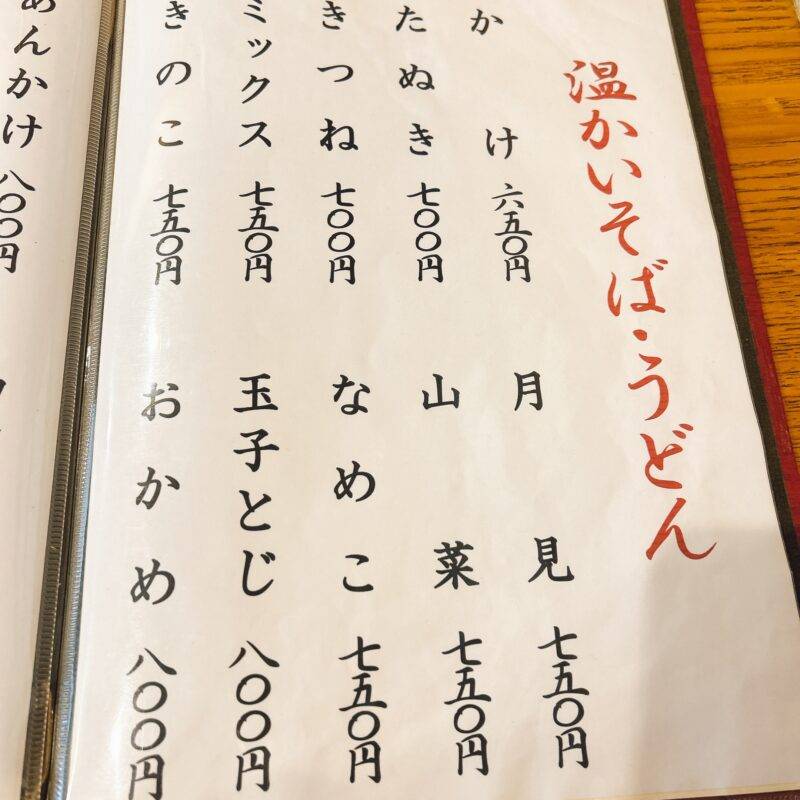 温かいそば・うどん
かけ 六五〇円
たぬき 七〇〇円
きつね 七〇〇円
ミックス 七五〇円
きのこ 七五〇円
月見 七五〇円
山菜 七五〇円
なめこ 七五〇円
玉子とじ 八〇〇円
おかめ 八〇〇円
あんかけ 八〇〇円